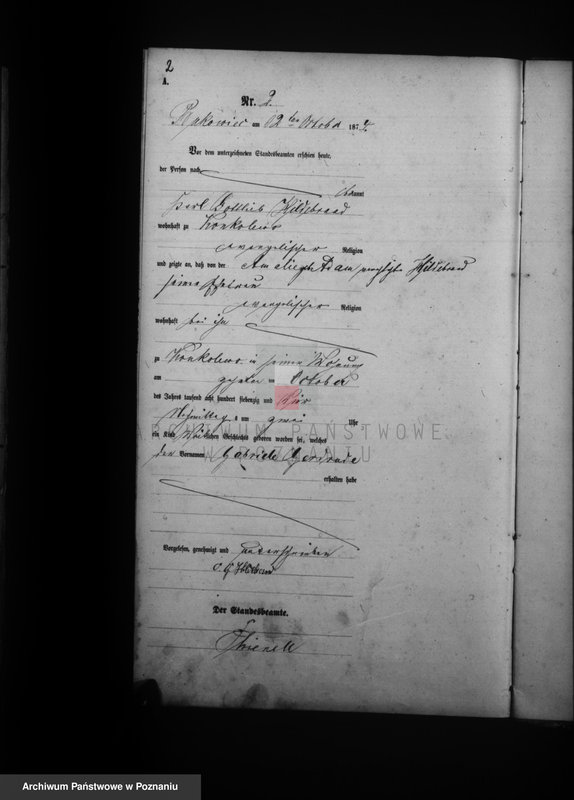 2
A.
Nr. 2.
am 02ten October 1874.
Vor dem unterzeichneten Standesbeamten erschien heute,
der Person nach
bekannt
Karl Gottlieb Hildebrand
wohnhaft zu Konkolewo
evangelischer Religion
und zeigte an, daß von der Adam Hildebrand
seiner Ehefrau
evangelischer Religion
wohnhaft bei ihm
zu Konkolewo in seiner Wohnung
am October
des Jahres tausend acht hundert siebenzig und Vier
Nachmittag s um zwei Uhr
ein Kind Weiblichen Geschlechts geboren worden sei, welches
den Vornamen Gabriele Gertrude
erhalten habe
ARCHIWUM PAŃSTWOWE
W POZNANIU
Vorgelesen, genehmigt und unterschrieben
Der Standesbeamte.
Archiwum Państwowe w Poznaniu